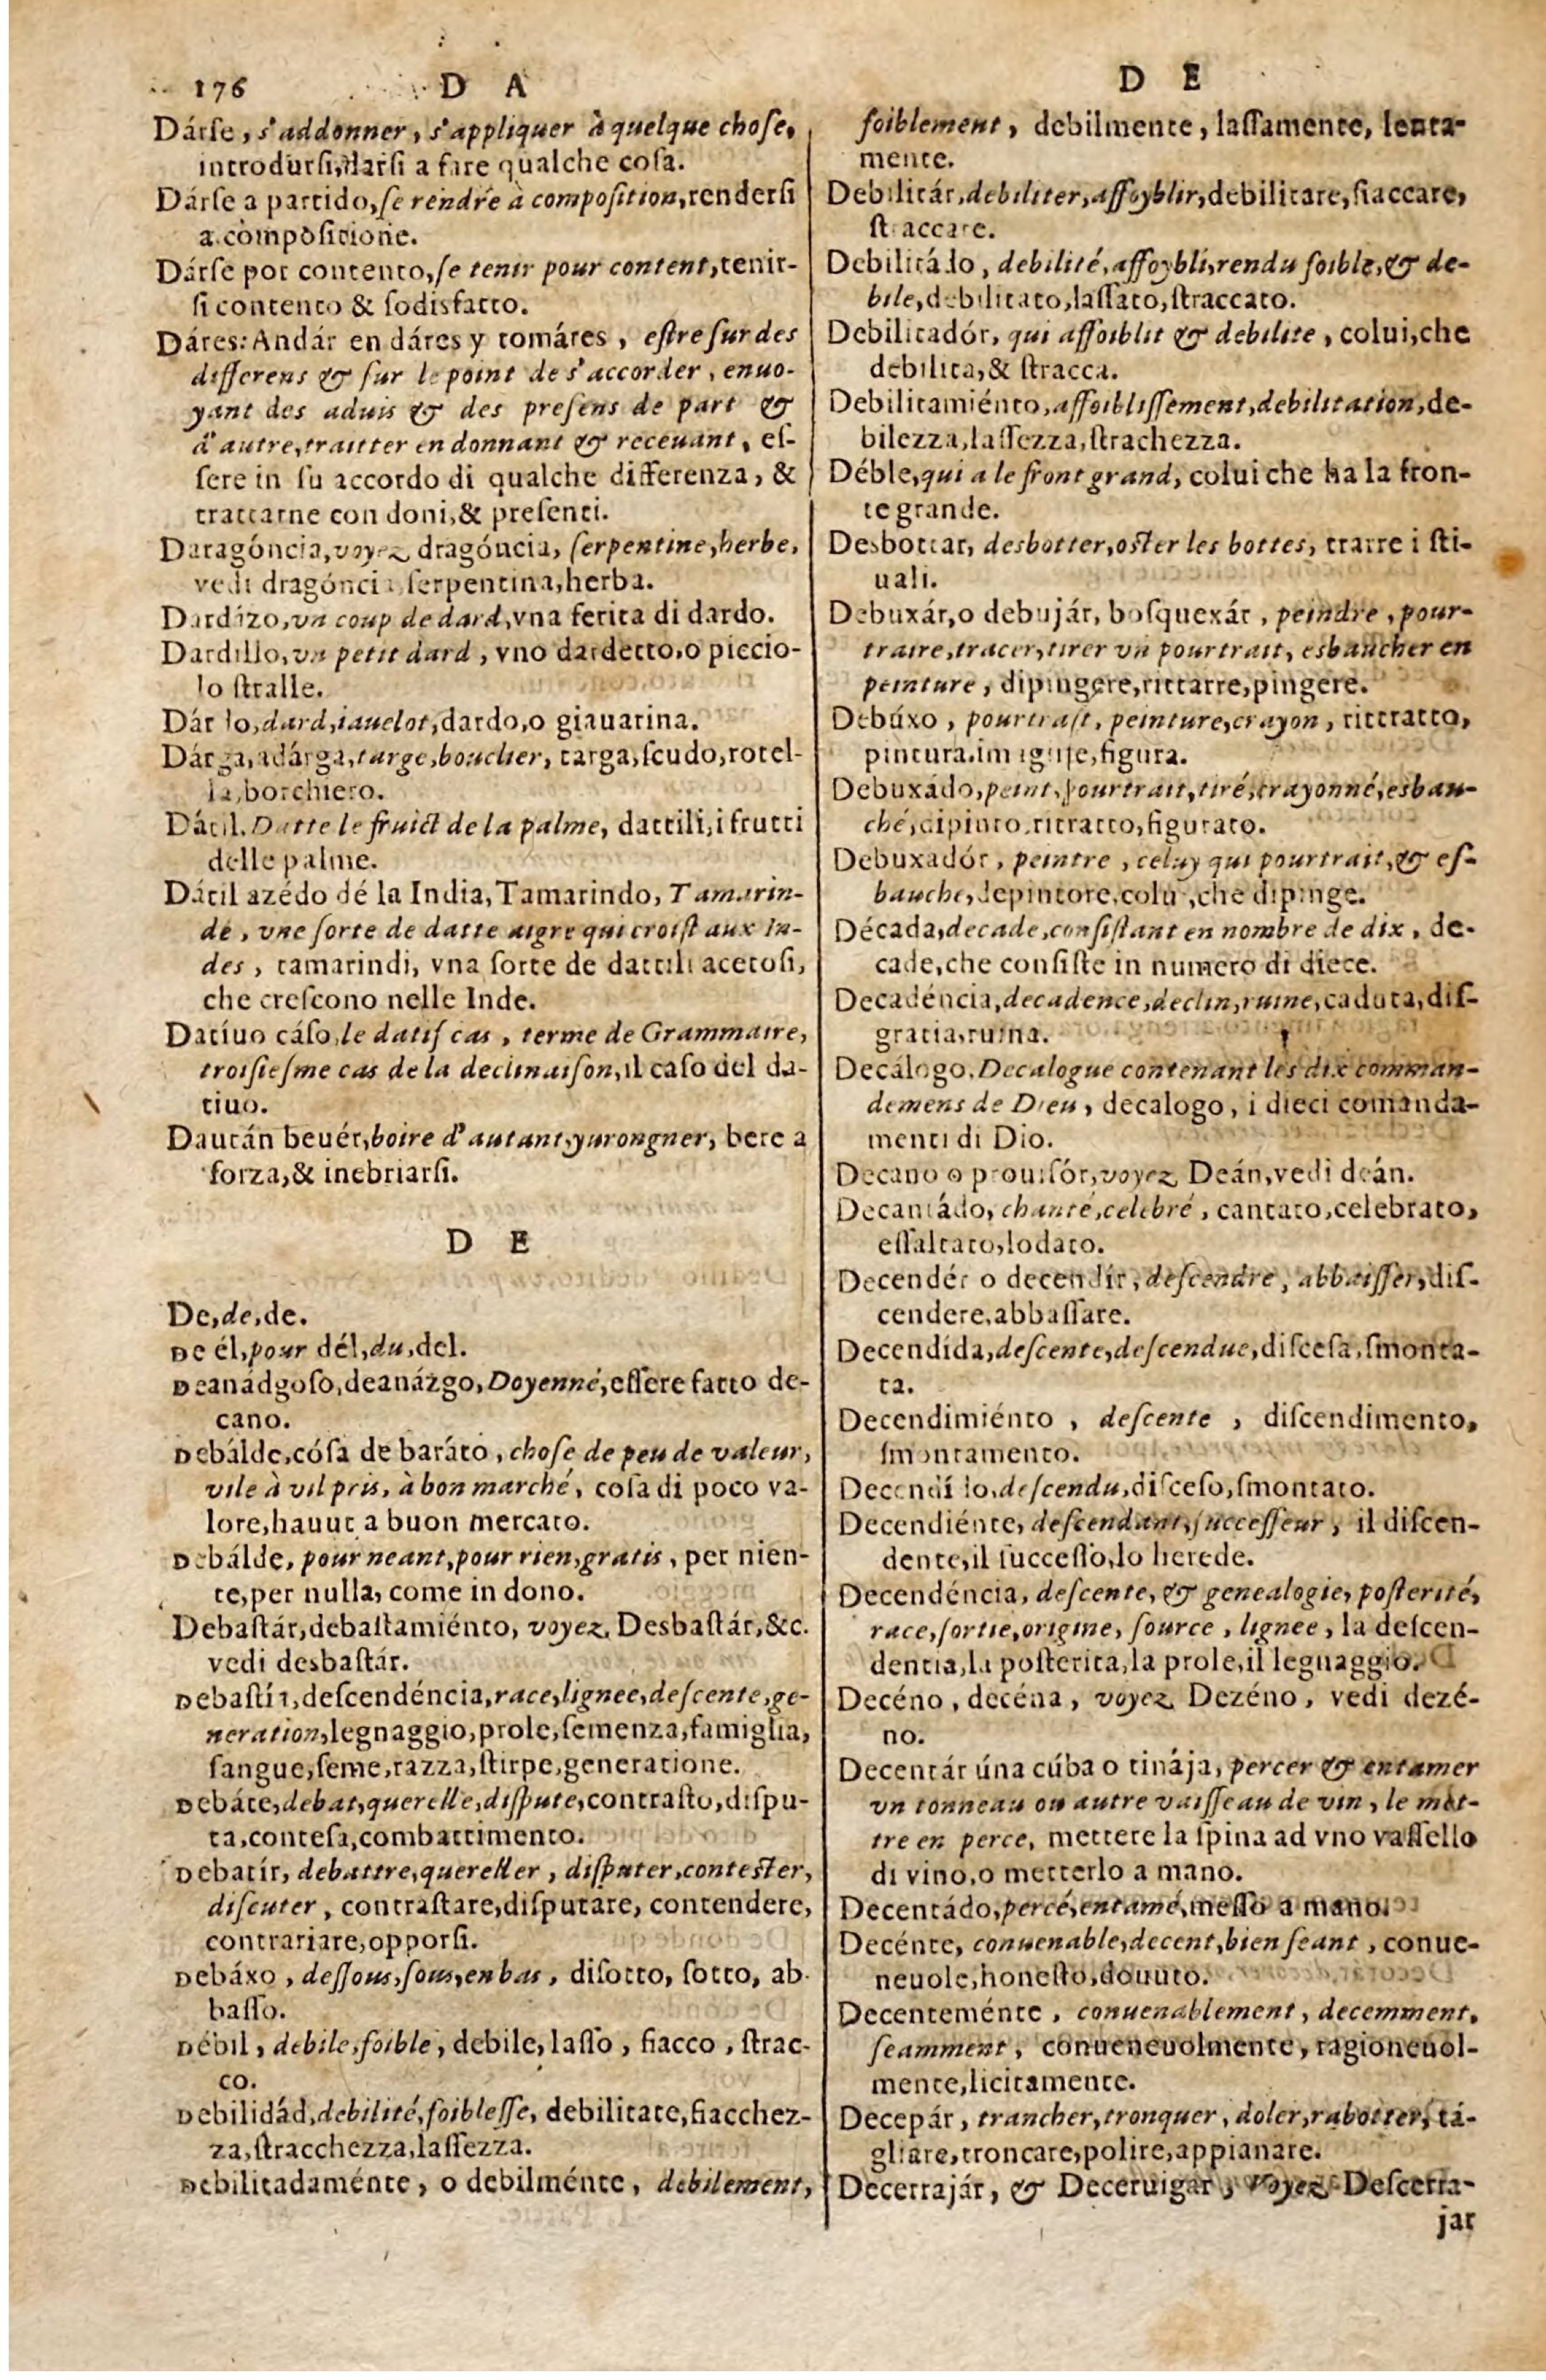 176 D A
Dárſe, s'addonner, s'appliquer à quelque choſe,
introdurſi, darſi a fare qualche coſa.
Dárſe a partido, ſe rendre à compoſition, renderſi
a compoſitione.
Dárſe por contento, ſe tenir pour content, tenir-
ſi contento & ſodisfatto.
Dáres: Andár en dáres y tomáres, eſtre ſur des
differens & ſur le point de s'accorder, enuo-
yant des aduis & des preſens de part &
d'autre, traitter en donnant & receuant, eſ-
ſere in ſu accordo di qualche differenza, &
trattarne con doni, & preſenti.
Daragóncia, voyez dragóucia, ſerpentine, herbe,
vedi dragóncia, ſerpentina, herba.
Dardázo, vn coup de dard, vna ferita di dardo.
Dardillo, vn petit dard, vno dardetto, o piccio-
lo ſtralle.
Dárdo, dard, iauelot, dardo, o giauarina.
Dárga, adárga, targe, bouclier, targa, ſcudo, rotel-
la, borchiero.
Dátil, Datte le fruict de la palme, dattili, i frutti
delle palme.
Dátil azédo dé la India, Tamarindo, Tamarin-
de, vne ſorte de datte aigre qui croiſt aux In-
des, tamarindi, vna ſorte de dattili acetoſi,
che creſcono nelle Inde.
Datíuo cáſo, le datif cas, terme de Grammaire,
troiſieſme cas de la declinaiſon, il caſo del da-
tiuo.
Daután beuér, boire d'autant, yurongner, bere a
forza, & inebriarſi.
D E
De, de, de.
De él, pour dél, du, del.
Deanádgoſo, deanázgo, Doyenné, eſſere fatto de-
cano.
Debálde, cóſa de baráto, choſe de peu de valeur,
vile à vil pris, à bon marché, coſa di poco va-
lore, hauut a buon mercato.
Debálde, pour neant, pour rien, gratis, per nien-
te, per nulla, come in dono.
Debaſtár, debaſtamiénto, voyez Desbaſtár, &c.
vedi desbaſtár.
Debaſtír, deſcendéncia, race, lignee, deſcente, ge-
neration, legnaggio, prole, ſemenza, famiglia,
ſangue, ſeme, razza, ſtirpe, generatione.
Debáte, debat, querelle, diſpute, contraſto, diſpu-
ta, conteſa, combattimento.
Debatír, debattre, quereller, diſputer, conteſter,
diſcuter, contraſtare, diſputare, contendere,
contrariare, opporſi.
Debáxo, deſſous, ſous, en bas, diſotto, ſotto, ab
baſſo.
Débil, debile, foible, debile, laſſo, fiacco, ſtrac-
co.
Debilidád, debilité, foibleſſe, debilitate, fiacchez-
za, ſtracchezza, laſſezza.
Debilitadaménte, o debilménte, debilement,
D E
foiblement, debilmente, laſſamente, lenta-
mente.
Debilitár, debiliter, affoyblir, debilitare, fiaccare,
ſtraccare.
Debilitádo, debilité, affoybli, rendu foible, & de-
bile, debilitato, laſſato, ſtraccato.
Debilitadór, qui affoiblit & debilite, colui, che
debilita, & ſtracca.
Debilitamiénto, affoibliſſement, debilitation, de-
bilezza, laſſezza, ſtrachezza.
Déble, qui a le front grand, colui che ha la fron-
te grande.
Desbottar, desbotter, oſter les bottes, trarre i ſti-
uali.
Debuxár, o debujár, boſquexár, peindre, pour-
traire, tracer, tirer vn pourtrait, esbaucher en
peinture, dipingere, rittarre, pingere.
Debúxo, pourtraſt, peinture, crayon, rittratto,
pintura, imagine, figura.
Debuxádo, peint, pourtrait, tiré, crayonné, esbau-
ché, dipinto, ritratto, figurato.
Debuxadór, peintre, celuy qui pourtrait, & eſ-
bauche, depintore, colui, che dipinge.
Década, decade, conſiſtant en nombre de dix, de-
cade, che conſiſte in numero di diece.
Decadéncia, decadence, declin, ruine, caduta, diſ-
gratia, ruina.
Decálogo, Decalogue contenant les dix comman-
demens de Dieu, decalogo, i dieci comanda-
menti di Dio.
Decano o prouiſór, voyez Deán, vedi deán.
Decantádo, chanté, celebré, cantato, celebrato,
eſſaltato, lodato.
Decendér o decendír, deſcendre, abbaiſſer, diſ-
cendere, abbaſſare.
Decendída, deſcente, deſcendue, diſceſa, ſmonta-
ta.
Decendimiénto, deſcente, diſcendimento,
ſmontamento.
Decendído, deſcendu, diſceſo, ſmontato.
Decendiénte, deſcendant, ſucceſſeur, il diſcen-
dente, il ſucceſſo, lo herede.
Decendéncia, deſcente, & genealogie, poſterité,
race, ſortie, origine, ſource, lignee, la deſcen-
dentia, la poſterita, la prole, il legnaggio.
Decéno, decéna, voyez Dezéno, vedi dezé-
no.
Decentár úna cúba o tinája, percer & entamer
vn tonneau ou autre vaiſſeau de vin, le met-
tre en perce, mettere la ſpina ad vno vaſſello
di vino, o metterlo a mano.
Decentádo, percé, entamé, meſſo a mano.
Decénte, conuenable, decent, bien ſeant, conue-
neuole, honeſto, douuto.
Decenteménte, conuenablement, decemment,
ſeamment, conueneuolmente, ragioneuol-
mente, licitamente.
Decepár, trancher, tronquer, doler, rabotter, tá-
gliare, troncare, polire, appianare.
Decerrajár, & Deceruigar, voyez Deſcerra-
jar